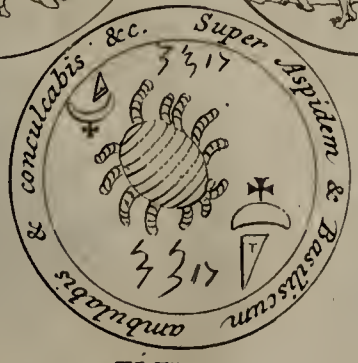 Super Aspidem & Basiliscum ambulabis & conculcabis &c.